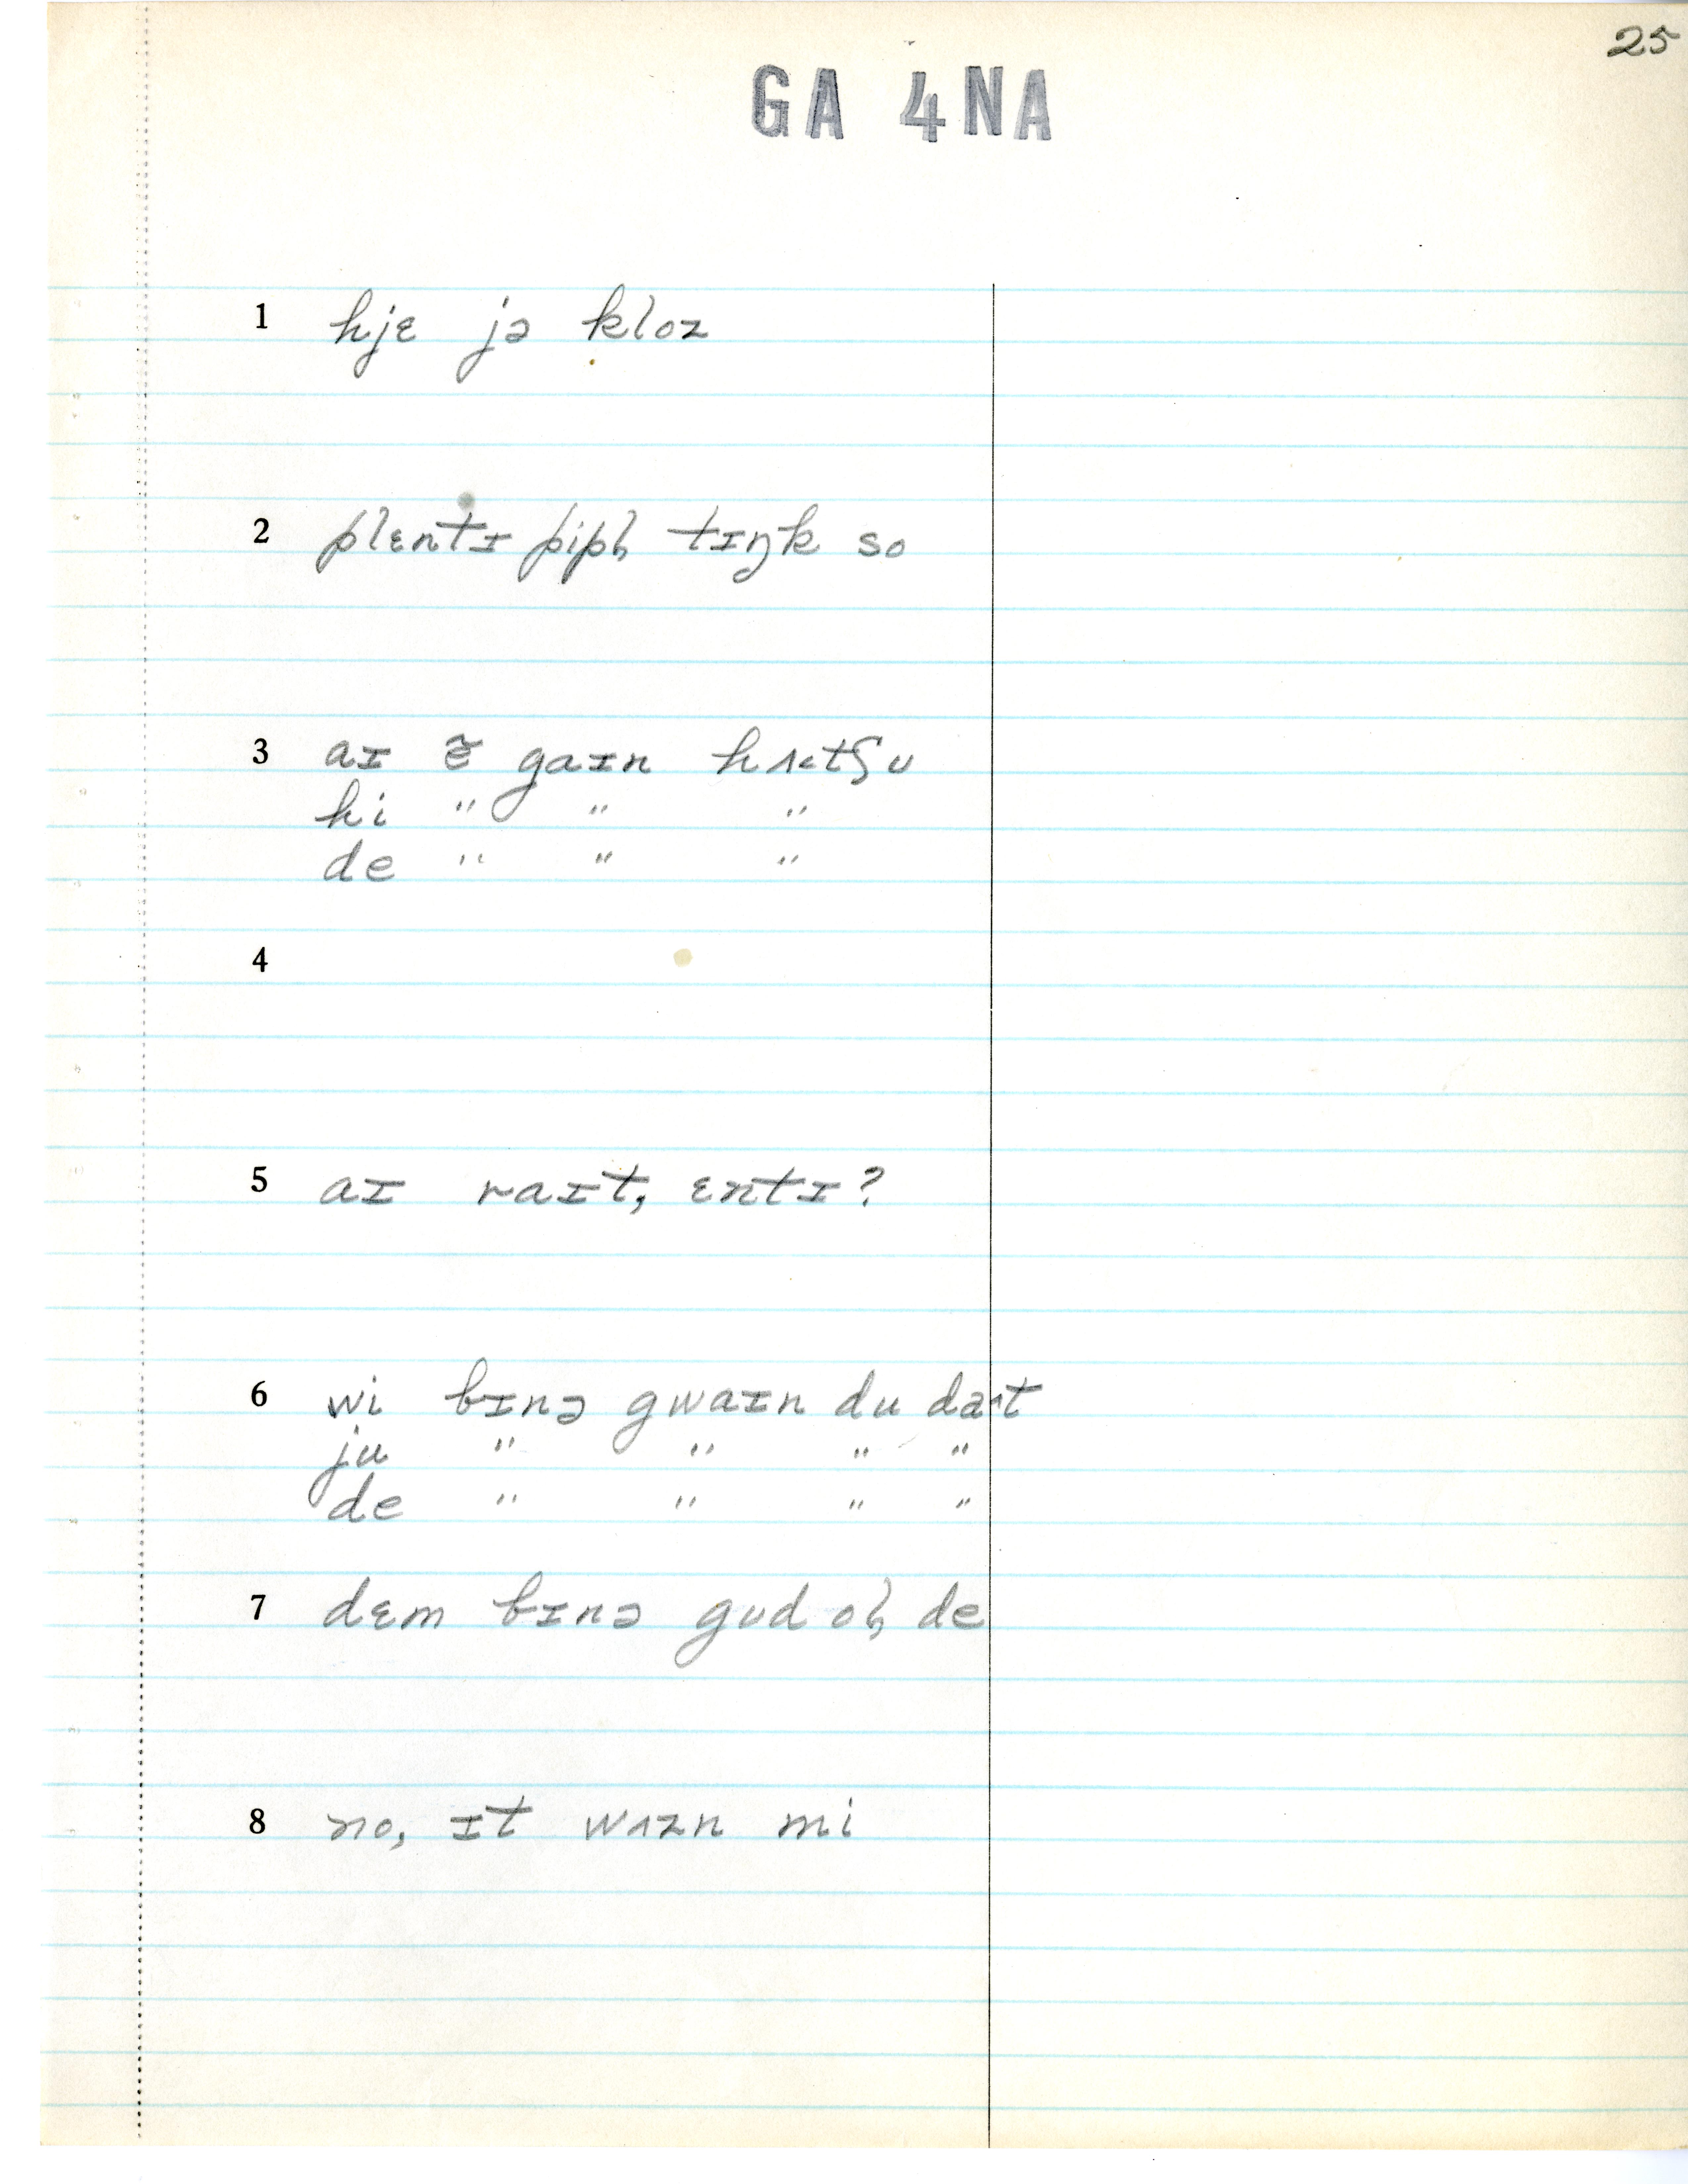 25
GA 4NA
1 hjɛ jə kloz
2 plɛntɪ pipl̩ tɪŋk so
3 aɪ ə̃ gaɪn hɜtʃʊ
hi " " "
de " " "
4
5 aɪ raɪt, ɛntɪ?
6 wi bɪnə gwaɪn du daɪt
ju " " " "
de " " " "
7 dɛm bɪnə gʊd ol̩ de
8 no, ɪt wɜzn mi